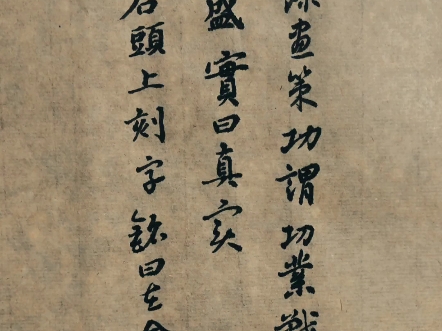 畫策功謂功業
盛實曰真实
石頭上刻字銘曰